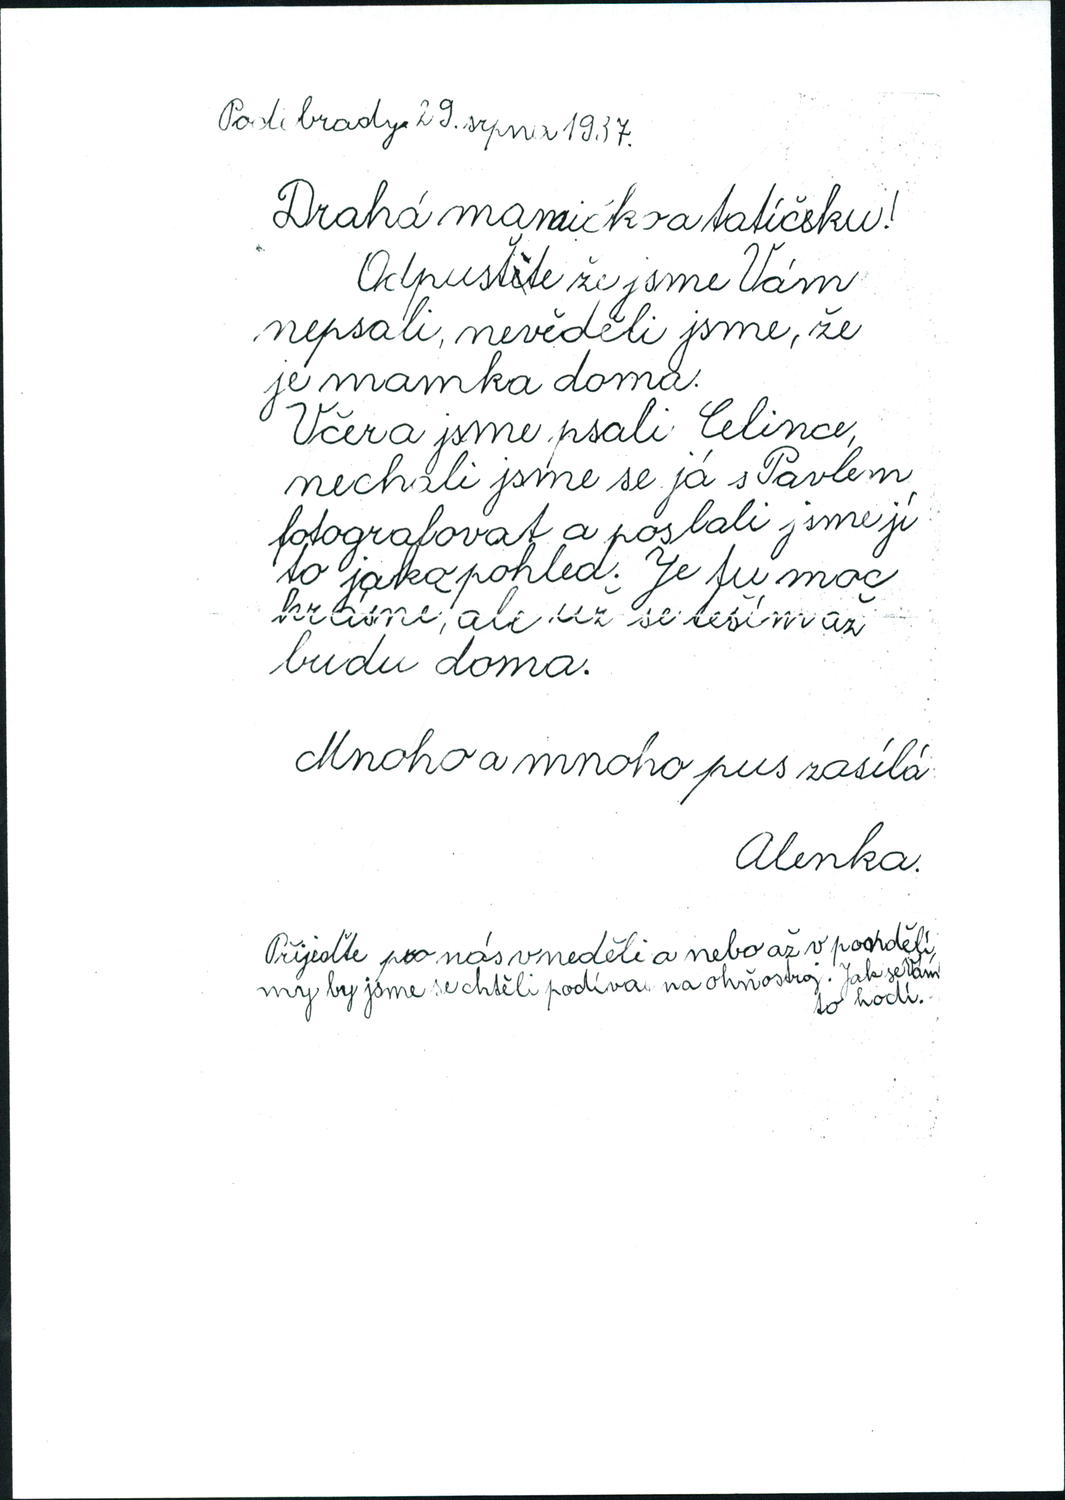 Poděbrady 29. srpna 1937.
Drahá maminko a tatíčku!
Odpusťte že jsme Vám
nepsali, nevěděli jsme, že
je mamka doma.
Včera jsme psali Celince,
nechali jsme se já s Pavlem
fotografovat a poslali jsme jí
to jako pohled. Je tu moc
krásně, ale už se těším až
budu doma.
Mnoho a mnoho pus zasílá
Alenka.
Přijeďte pro nás v neděli a nebo až v pondělí,
my by jsme se chtěli podívat na ohňostroj. Jak se Vám
to hodí.